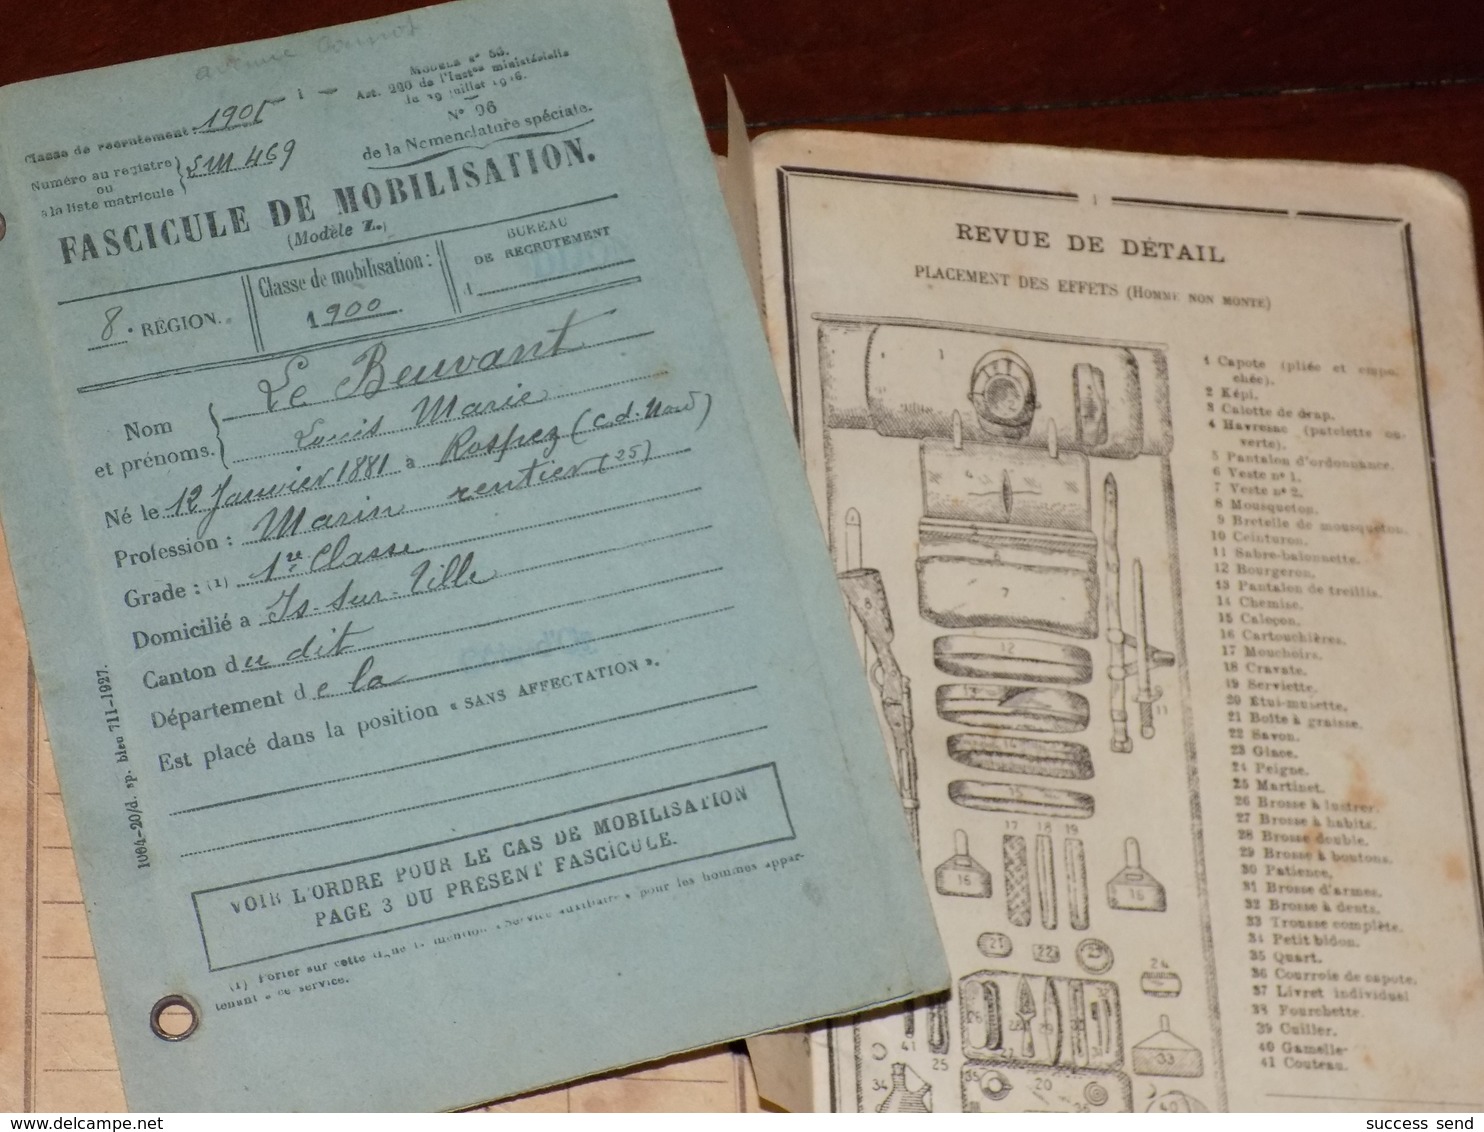 Classe de recrutement : 1901
Numéro au registre
ou
à la liste matricule
SM 469
MODÈLE N° 56.
Art. 290 de l'Inst°ⁿ ministérielle
du 29 juillet 1916.
N° 96
de la Nomenclature spéciale.
FASCICULE DE MOBILISATION.
(Modèle Z.)
8e RÉGION.
Classe de mobilisation :
1900
BUREAU
DE RECRUTEMENT
Nom
et prénoms.
Le Beuvant
Louis Marie
Né le 12 Janvier 1881 à Rospez (C. d. Nord)
Profession : Marin rentier (25)
Grade : (1) 1re Classe
Domicilié à Is-sur-Tille
Canton du dit
Département de la
Est placé dans la position « SANS AFFECTATION ».
VOIR L'ORDRE POUR LE CAS DE MOBILISATION
PAGE 3 DU PRÉSENT FASCICULE.
(1) Porter sur cette ligne la mention « Service auxiliaire » pour les hommes appar-
tenant à ce service.
1064-20/d. sp. bleu 711-1927.
1
REVUE DE DÉTAIL
PLACEMENT DES EFFETS (HOMME NON MONTÉ)
1 Capote (pliée et empa-
chée).
2 Képi.
3 Calotte de drap.
4 Havresac (patelette ou-
verte).
5 Pantalon d'ordonnance.
6 Veste n° 1.
7 Veste n° 2.
8 Mousqueton.
9 Bretelle de mousqueton.
10 Ceinturon.
11 Sabre-baïonnette.
12 Bourgeron.
13 Pantalon de treillis.
14 Chemise.
15 Caleçon.
16 Cartouchières.
17 Mouchoirs.
18 Cravate.
19 Serviette.
20 Étui-musette.
21 Boîte à graisse.
22 Savon.
23 Glace.
24 Peigne.
25 Martinet.
26 Brosse à lustrer.
27 Brosse à habits.
28 Brosse double.
29 Brosse à boutons.
30 Patience.
31 Brosse d'armes.
32 Brosse à dents.
33 Trousse complète.
34 Petit bidon.
35 Quart.
36 Courroie de capote.
37 Livret individuel
38 Fourchette.
39 Cuiller.
40 Gamelle
41 Couteau.
success send